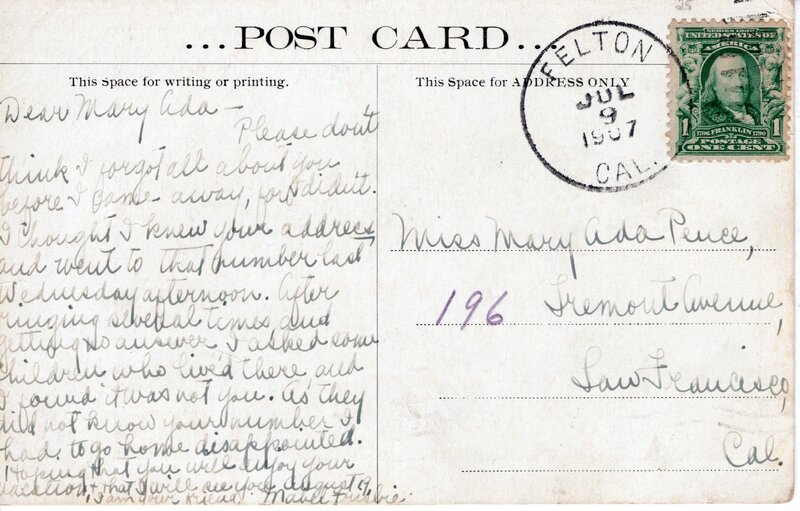 ...POST CARD...
This Space for writing or printing.
This Space for ADDRESS ONLY
Dear Mary Ada—
Please don't
think I forgot all about you
before I came away, for I didn't.
I thought I knew your address,
and went to that number last
Wednesday afternoon. After
ringing several times and
getting no answer I asked some
children who lived there and
I found it was not you. As they
did not know your number I
had to go home disappointed.
Hoping that you will enjoy your
vacation & that I will see you August 19,
I am your friend. Mabel
FELTON
JUL
9
1907
CAL.
SERIES 1902
UNITED STATES OF
AMERICA
1706 FRANKLIN 1790
1 POSTAGE 1
ONE CENT
Miss Mary Ada Pence,
196 Tremont Avenue,
San Francisco,
Cal.
25